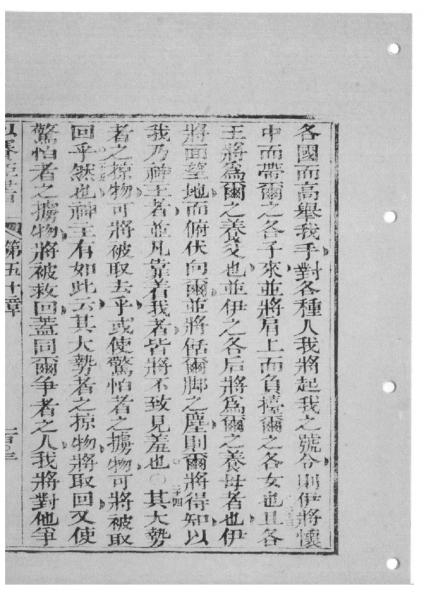 各國而高舉我手對各種人我將起我之號令則伊將懷
中而帶爾之各子來並將肩上而負擡爾之各女也且各
王將爲爾之養父也並伊之各后將爲爾之養母者也伊
將面望地而俯伏向爾並將餂爾脚之塵則爾將得知以
我乃神主者並凡靠着我者皆將不致見羞也○二十四其大勢
者之掠物可將被取去乎或使驚怕者之擄物可將被取
回乎然也神主有如此云其大勢者之掠物將取回又使
驚怕者之擄物將被救回蓋同爾爭者之人我將對他爭
書 第五十章